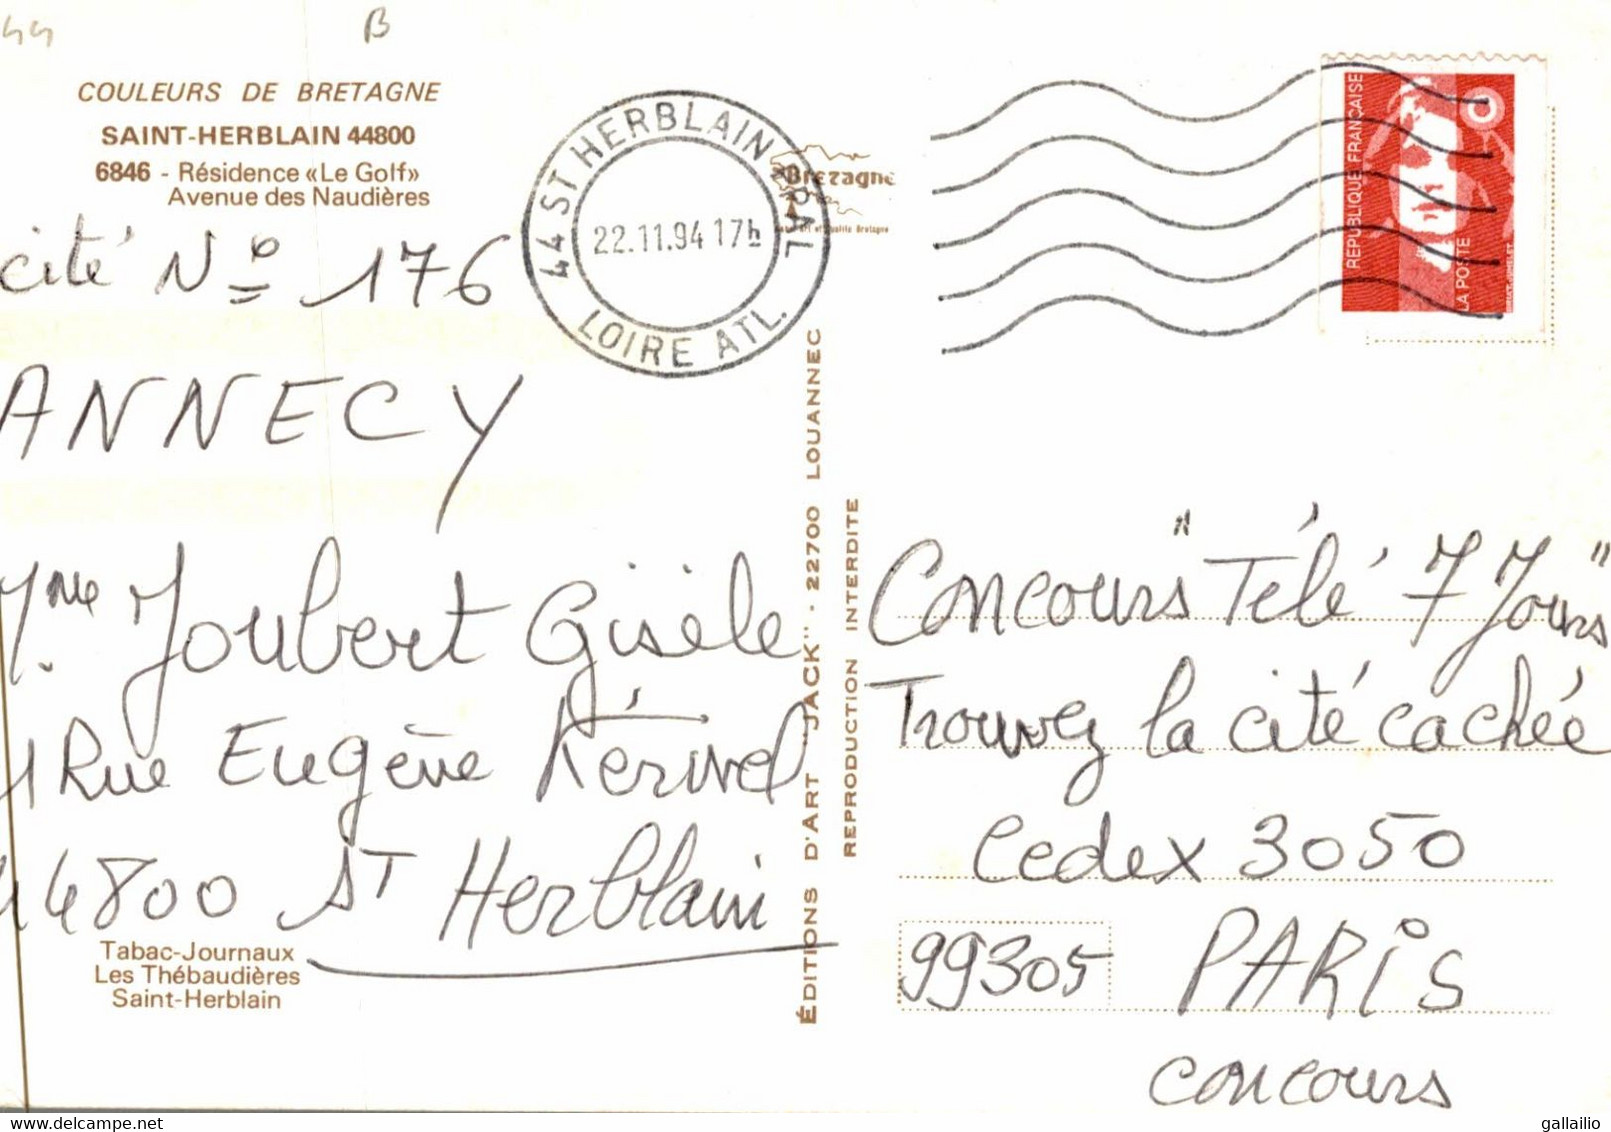 44
B
COULEURS DE BRETAGNE
SAINT-HERBLAIN 44800
6846 - Résidence «Le Golf»
Avenue des Naudières
cité N° 176
ANNECY
Mme Joubert Gisèle
1 Rue Eugène Kérivel
44800 ST Herblain
Tabac-Journaux
Les Thébaudières
Saint-Herblain
44 ST HERBLAIN PPAL
22.11.94 17h
LOIRE ATL.
Bretagne
ÉDITIONS D'ART "JACK" · 22700 LOUANNEC
REPRODUCTION INTERDITE
REPUBLIQUE FRANÇAISE
LA POSTE
Concours "Télé 7 Jours"
Trouvez la cité cachée
Cedex 3050
99305 PARIS
concours
gallailio